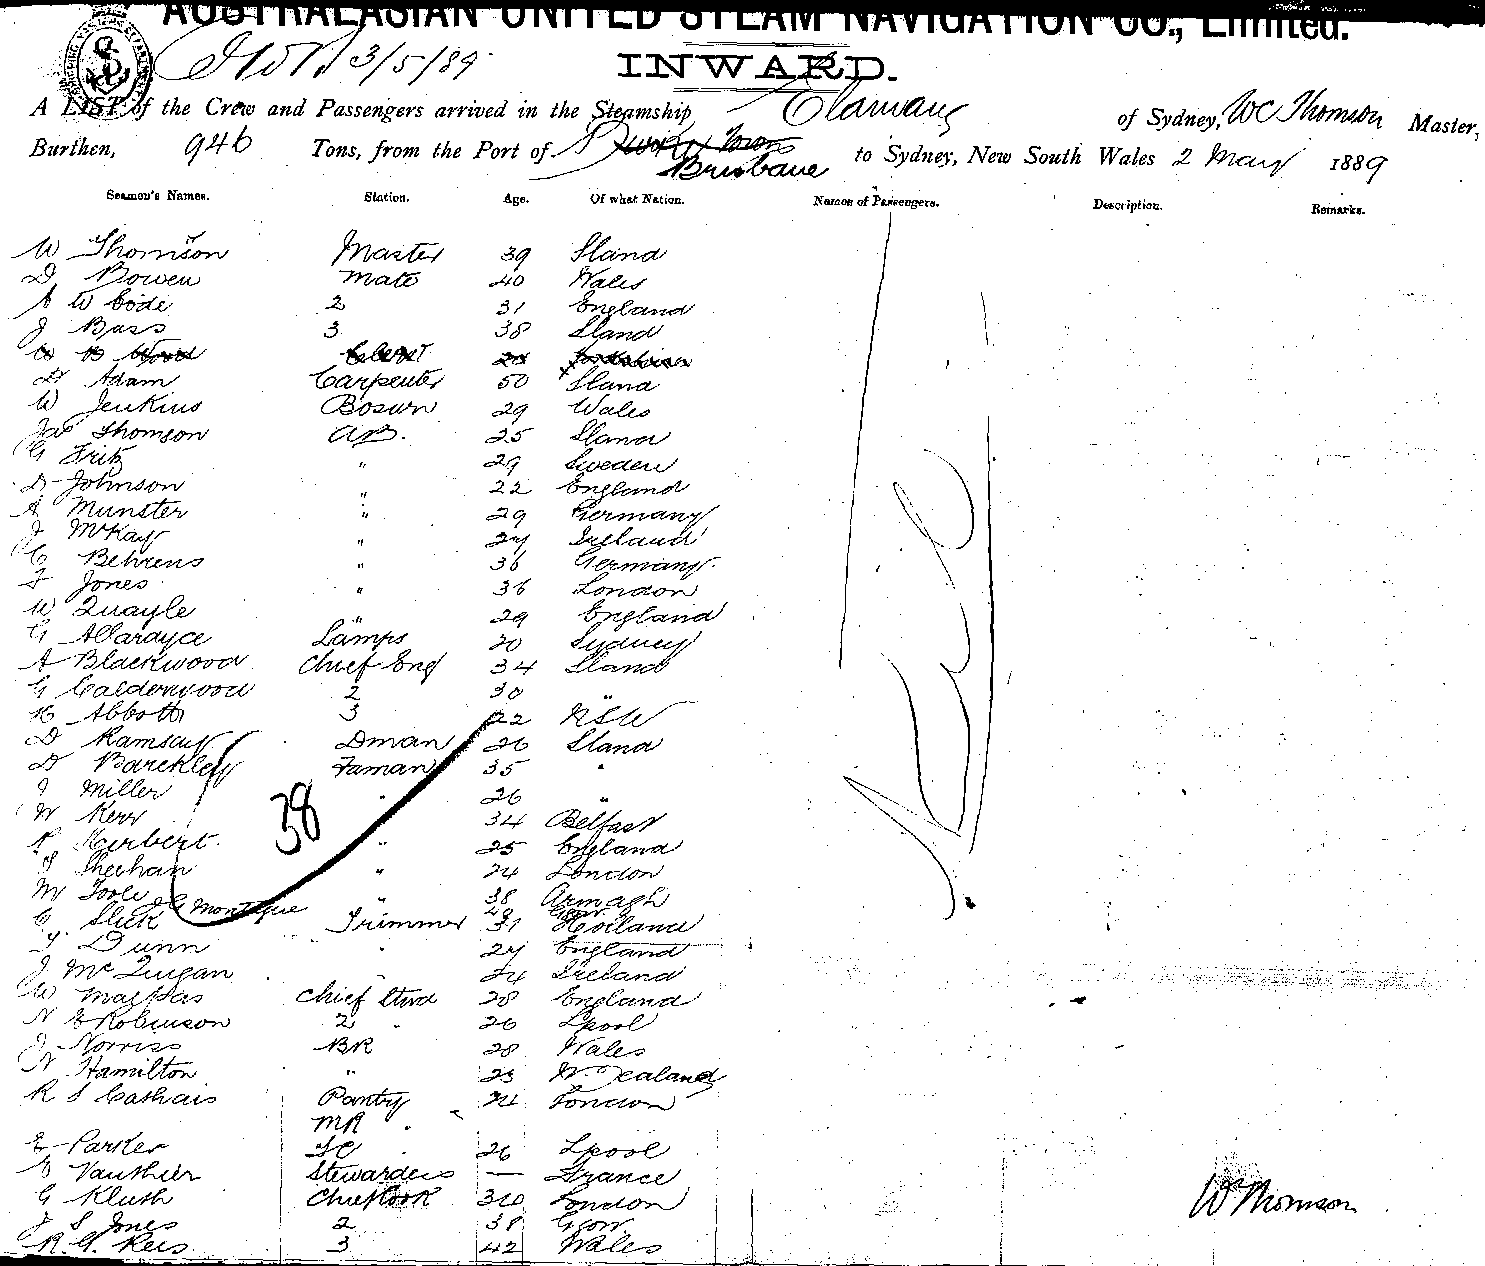 AUSTRALASIAN UNITED STEAM NAVIGATION CO., Limited.
3/5/89
INWARD.
A LIST of the Crew and Passengers arrived in the Steamship of Sydney, WC Thomson Master,
Burthen, 946 Tons, from the Port of Brisbane to Sydney, New South Wales 2 May 1889
Seamen's Names. Station. Age. Of what Nation. Names of Passengers. Description. Remarks.
W Thomson Master 39 Sland
D Bowen Mate 40 Wales
A W Code 2 31 England
J Bass 3 38 Sland
D Adam Carpenter 50 Sland
W Jenkins Bosun 29 Wales
Jas Thomson AB. 25 Sland
G Fritz " 29 Sweden
D Johnson " 22 England
A Munster " 29 Germany
J McKay " 27 Ireland
C Behrens " 36 Germany
F Jones " 36 London
W Quayle " 29 England
G Allardyce Lamps 20 Sydney
A Blackwood Chief Eng 34 Sland
G Calderwood 2 30 "
H Abbott 3 22 NSW
D Ramsay Dman 26 Sland
D Barckley Faman 35 "
J Miller " 26 "
W Kerr 34 Belfast
38
Herbert " 25 England
Sheehan " 24 London
M Toole " 38 Armagh
G Montague 40 Ggow
C Slick Trimmer 31 Holland
Dunn " 27 England
J McQuigan " 24 Ireland
W Malpas Chief Stwd 28 England
N E Robinson 2 " 26 Lpool
J Norriss BR 28 Wales
N Hamilton " 23 N. Zealand
R S Pantry 21 London
MR
E Parker 26 Lpool
E Vauthier Stewardess — France
G Kluth Chief Cook 30 London
J S Jones 2 38 Ggow
R. G. Rees 3 42 Wales
W Thomson